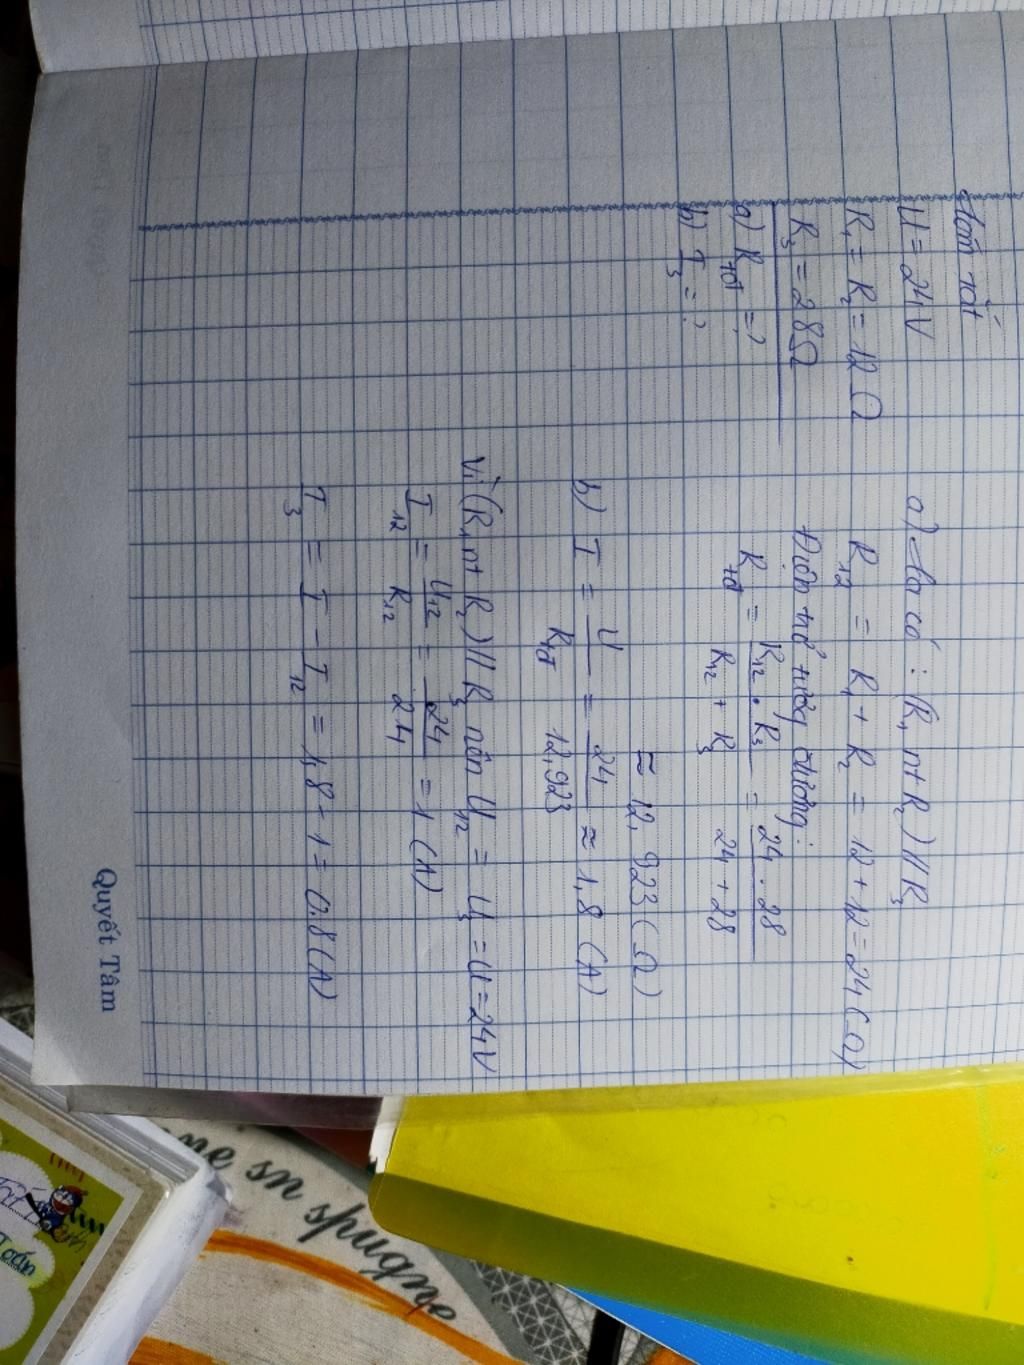 Tóm tắt
U = 24V
R₁ = R₂ = 12 Ω
R₃ = 28Ω
a) Rtđ = ?
b) I₃ = ?
a) Ta có : (R₁ nt R₂) // R₃
R₁₂ = R₁ + R₂ = 12 + 12 = 24 (Ω)
Điện trở tương đương :
Rtđ = R₁₂ . R₃ / R₁₂ + R₃ = 24 . 28 / 24 + 28
≈ 12,923 (Ω)
b) I = U / Rtđ = 24 / 12,923 ≈ 1,8 (A)
Vì (R₁ nt R₂) // R₃ nên U₁₂ = U₃ = U = 24V
I₁₂ = U₁₂ / R₁₂ = 24 / 24 = 1 (A)
I₃ = I - I₁₂ = 1,8 - 1 = 0.8 (A)
Quyết Tâm
Toán